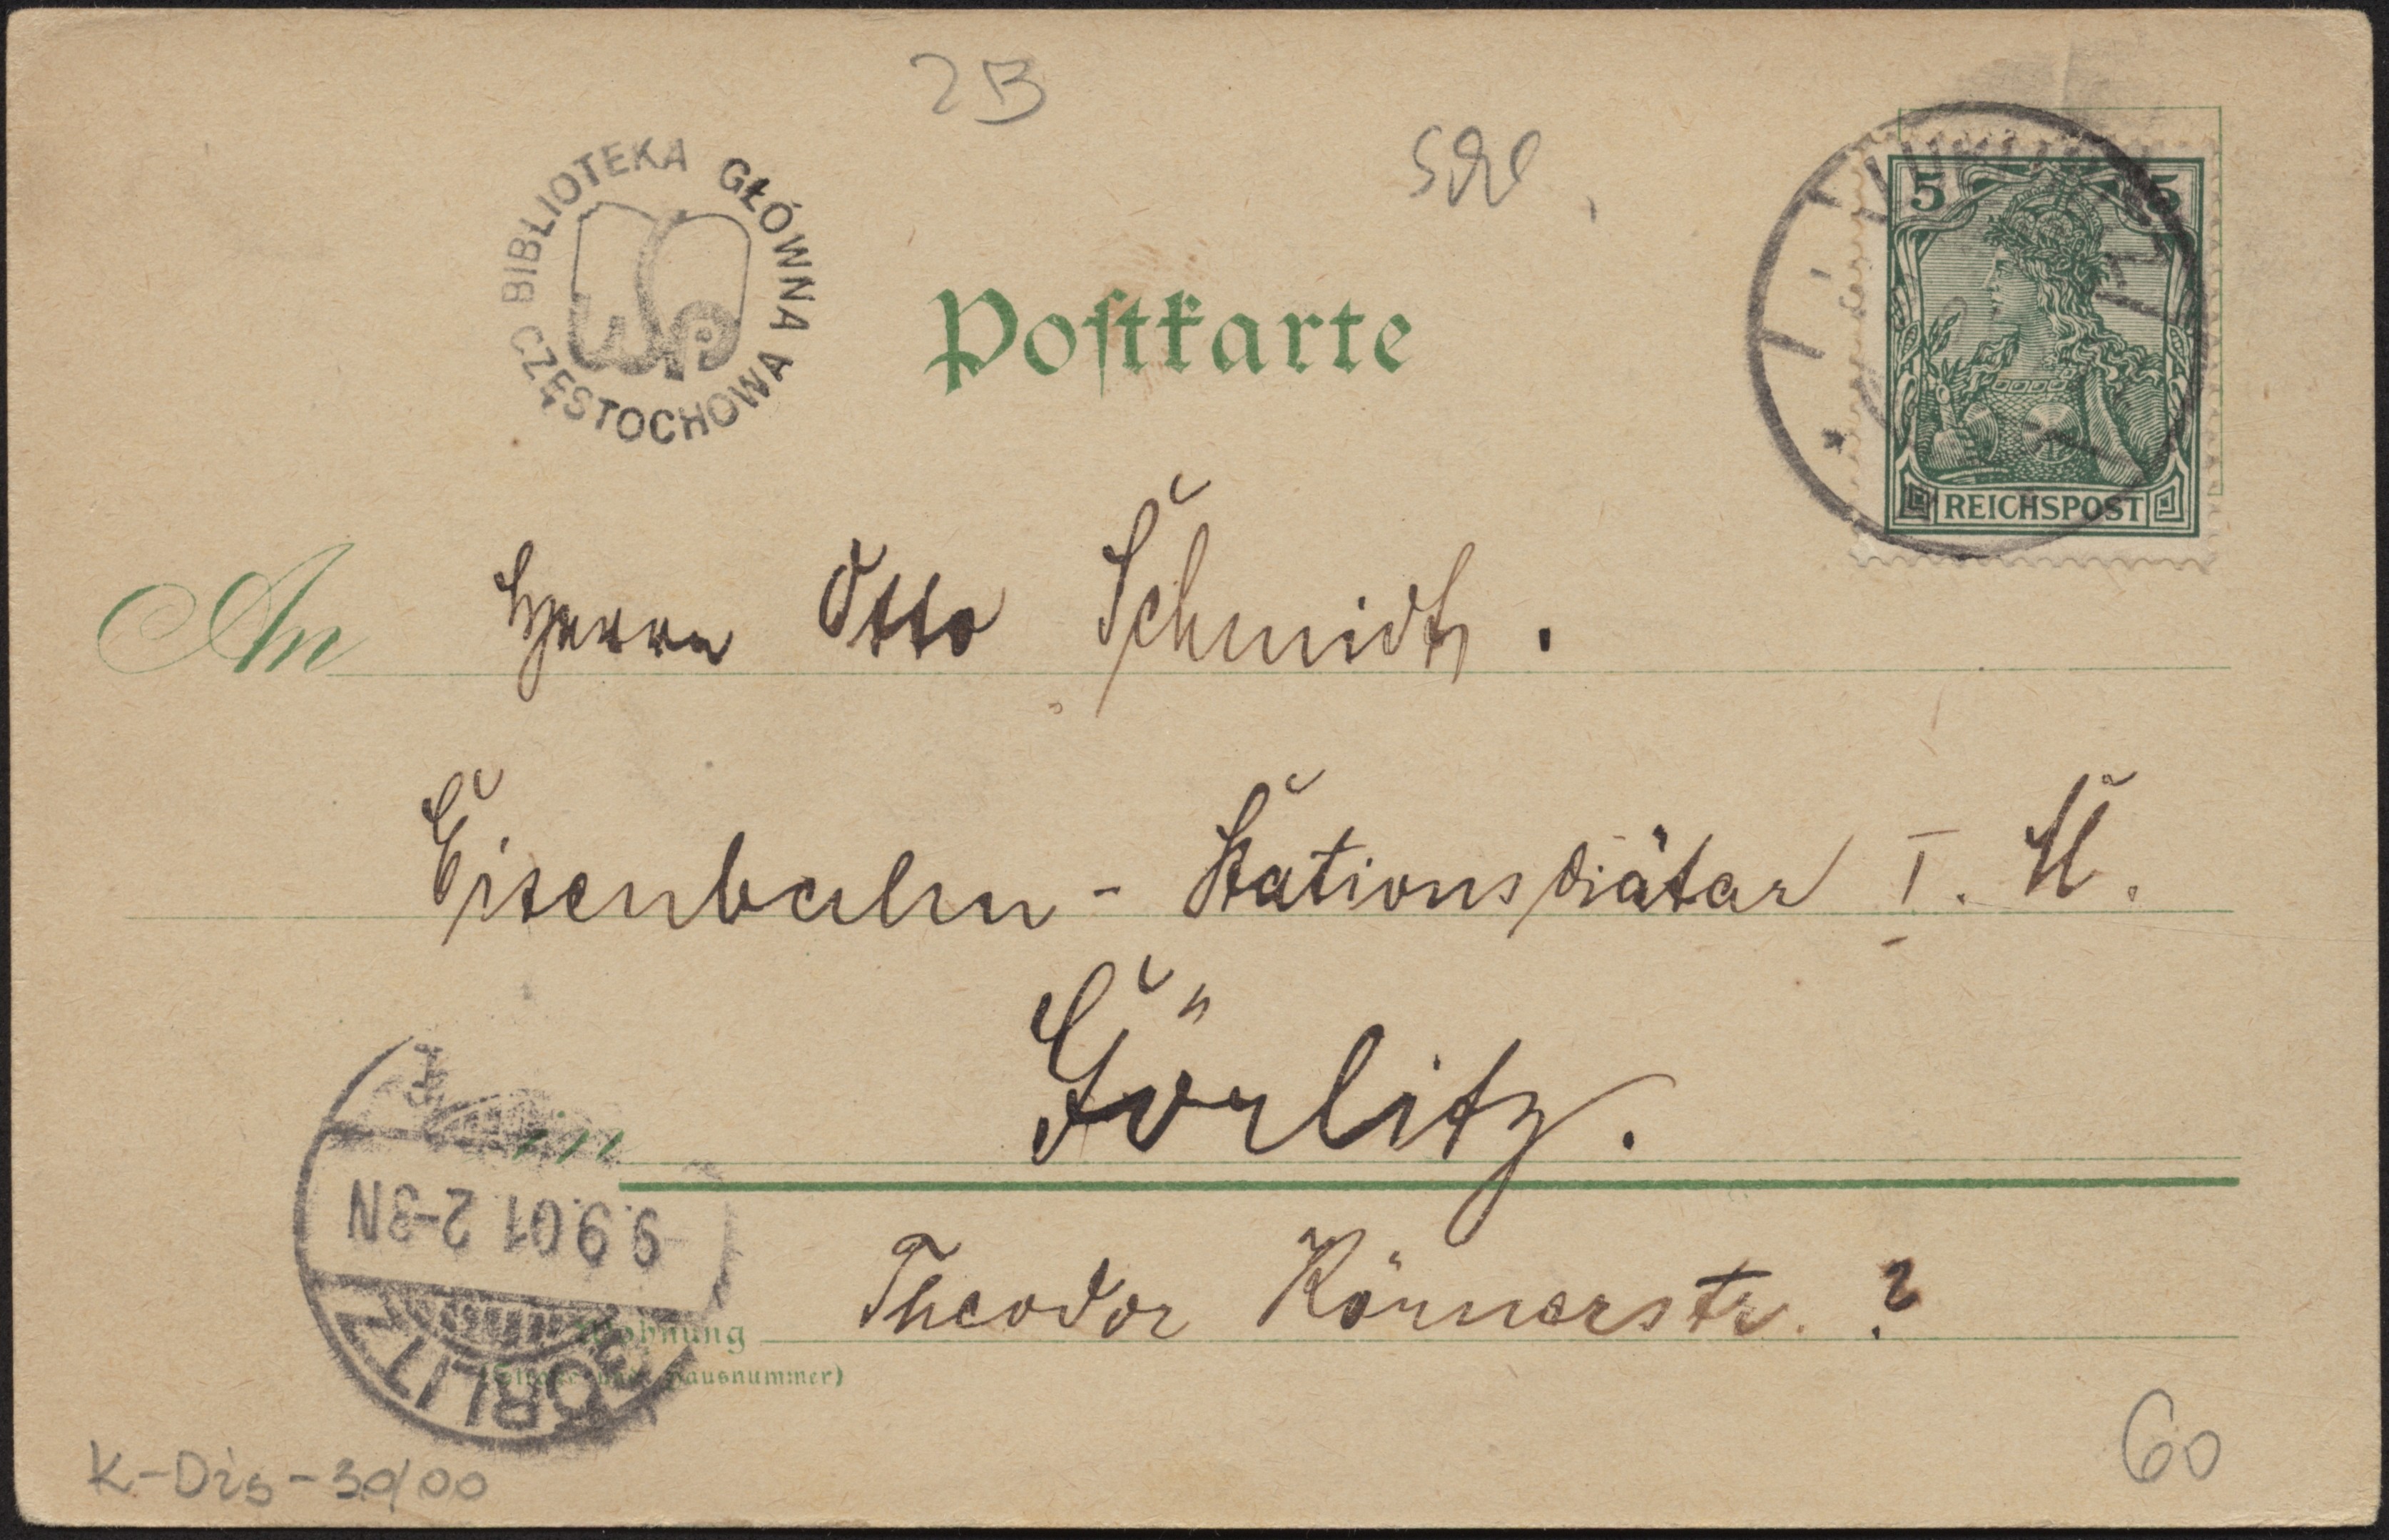 2B
BIBLIOTEKA GŁÓWNA
WSP
CZĘSTOCHOWA
Postkarte
5 5
REICHSPOST
An Herrn Otto Schmidt.
Eisenbahn - Stationsdiätar I. Kl.
in Görlitz.
Theodor Körnerstr. ?
Wohnung
(Straße und Hausnummer)
GÖRLITZ
-9.9.01. 2-3N
K-Dis-30/00
60